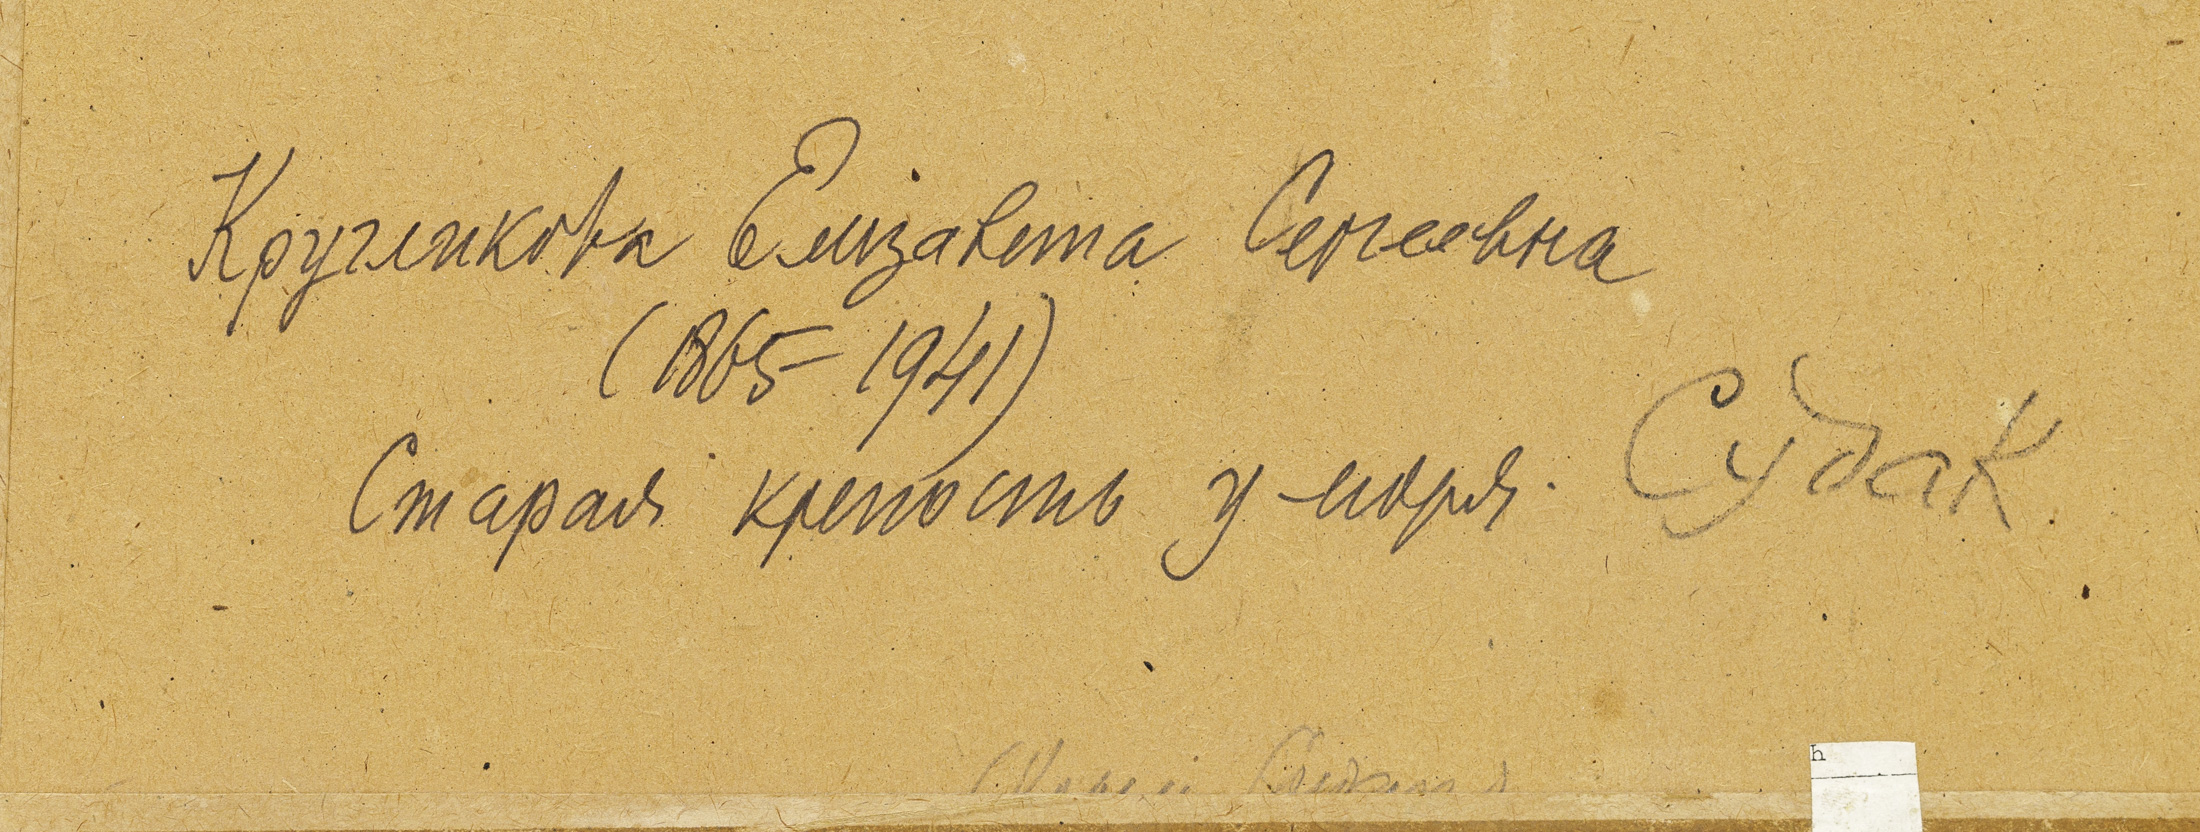 Кругликова Елизавета Сергеевна
(1865 – 1941)
Старая крепость у моря. Судак
h